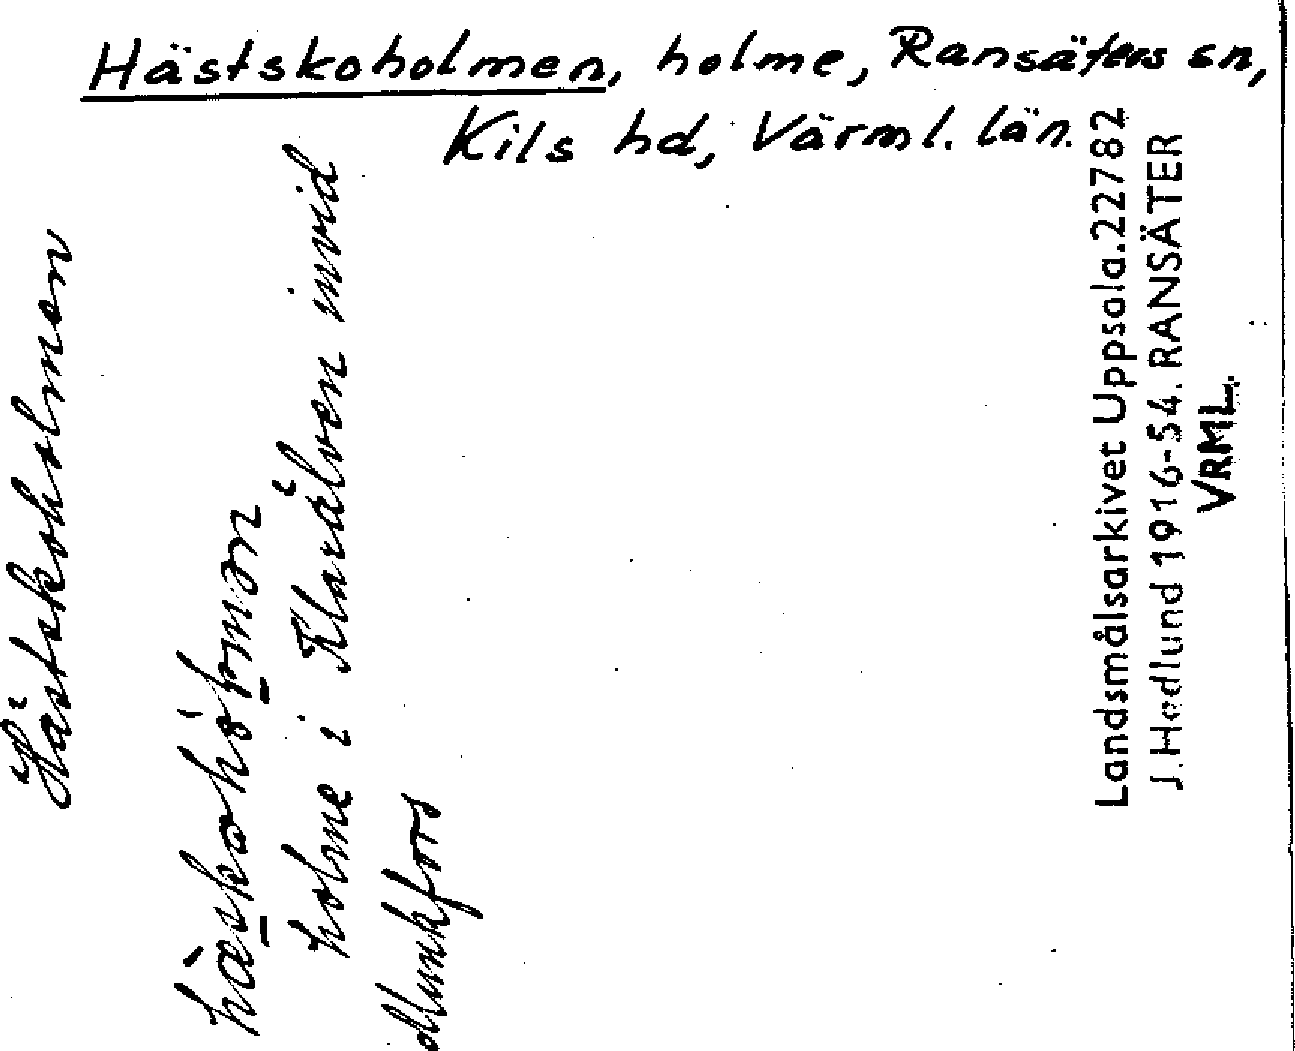 Hästskoholmen, holme, Ransäters sn,
Kils hd, Värml. län.
Hästskoholmen
holme i Klarälven invid
Munkfors
Landsmålsarkivet Uppsala. 22782
J. Hedlund 1916-54. RANSÄTER
VRML.